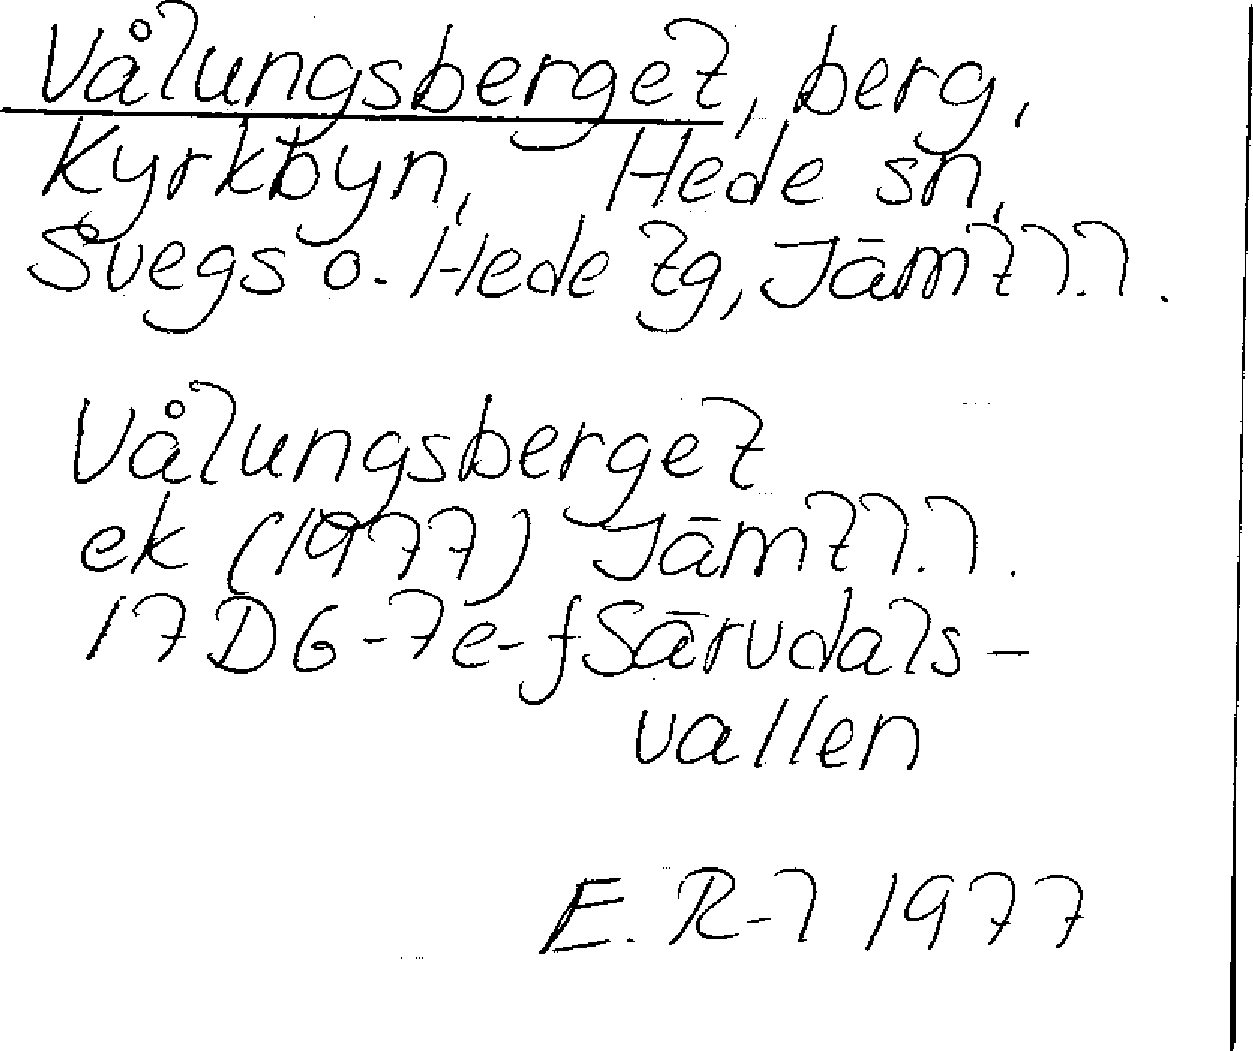 Vålungsberget, berg,
Kyrkbyn, Hede sn,
Svegs o. Hede tg, Jämtl.l.
Vålungsberget
ek (1977) Jämtl.l.
17 D 6-7e-f Särvdals-
vallen
E. R-l 1977